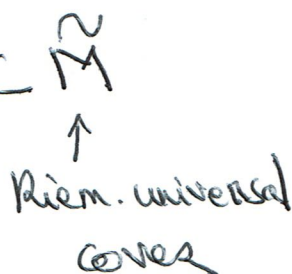 M̃
↑
Riem. universal
cover